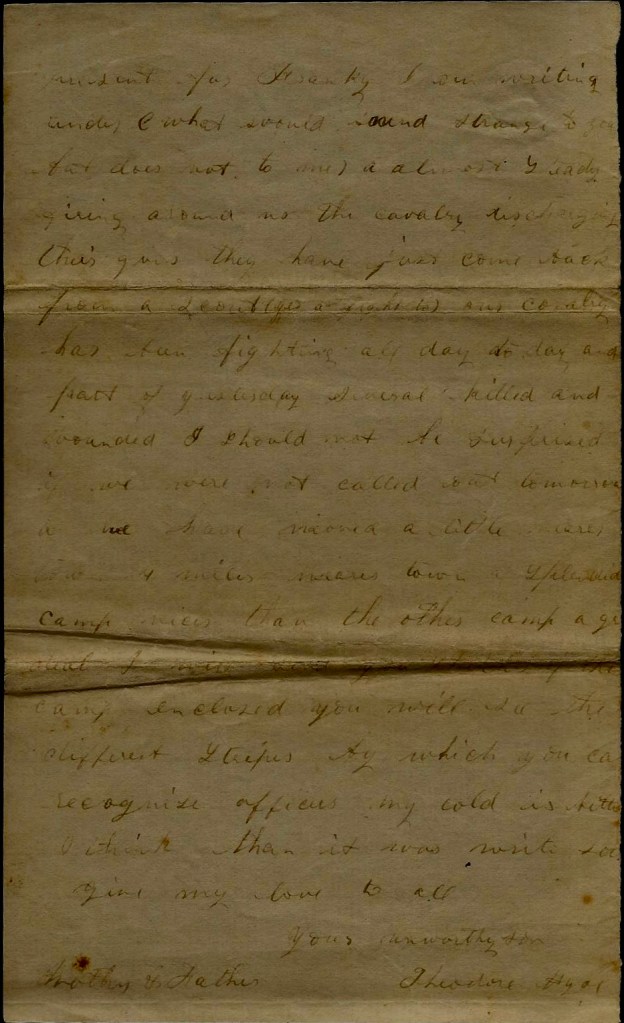 present for Franky I am writing
under what would sound strange to you
but does not to me) a almost Steady
firing around us the cavalry discharging
their guns they have just come back
from a Scout (or a fight) our cavalry
has been fighting all day to day and
part of yesterday Several killed and
wounded I should not be surprised
if we were not called out tomorrow
we have moved a little nearer
town 4 miles nearer town a Splendid
camp nicer than the other camp a gr
deal I will
camp enclosed you will see the
different Stripes by which you ca
recognize officers my cold is better
I think than it was write soon
give my love to all
Your unworthy son
Mother & Father Theodore